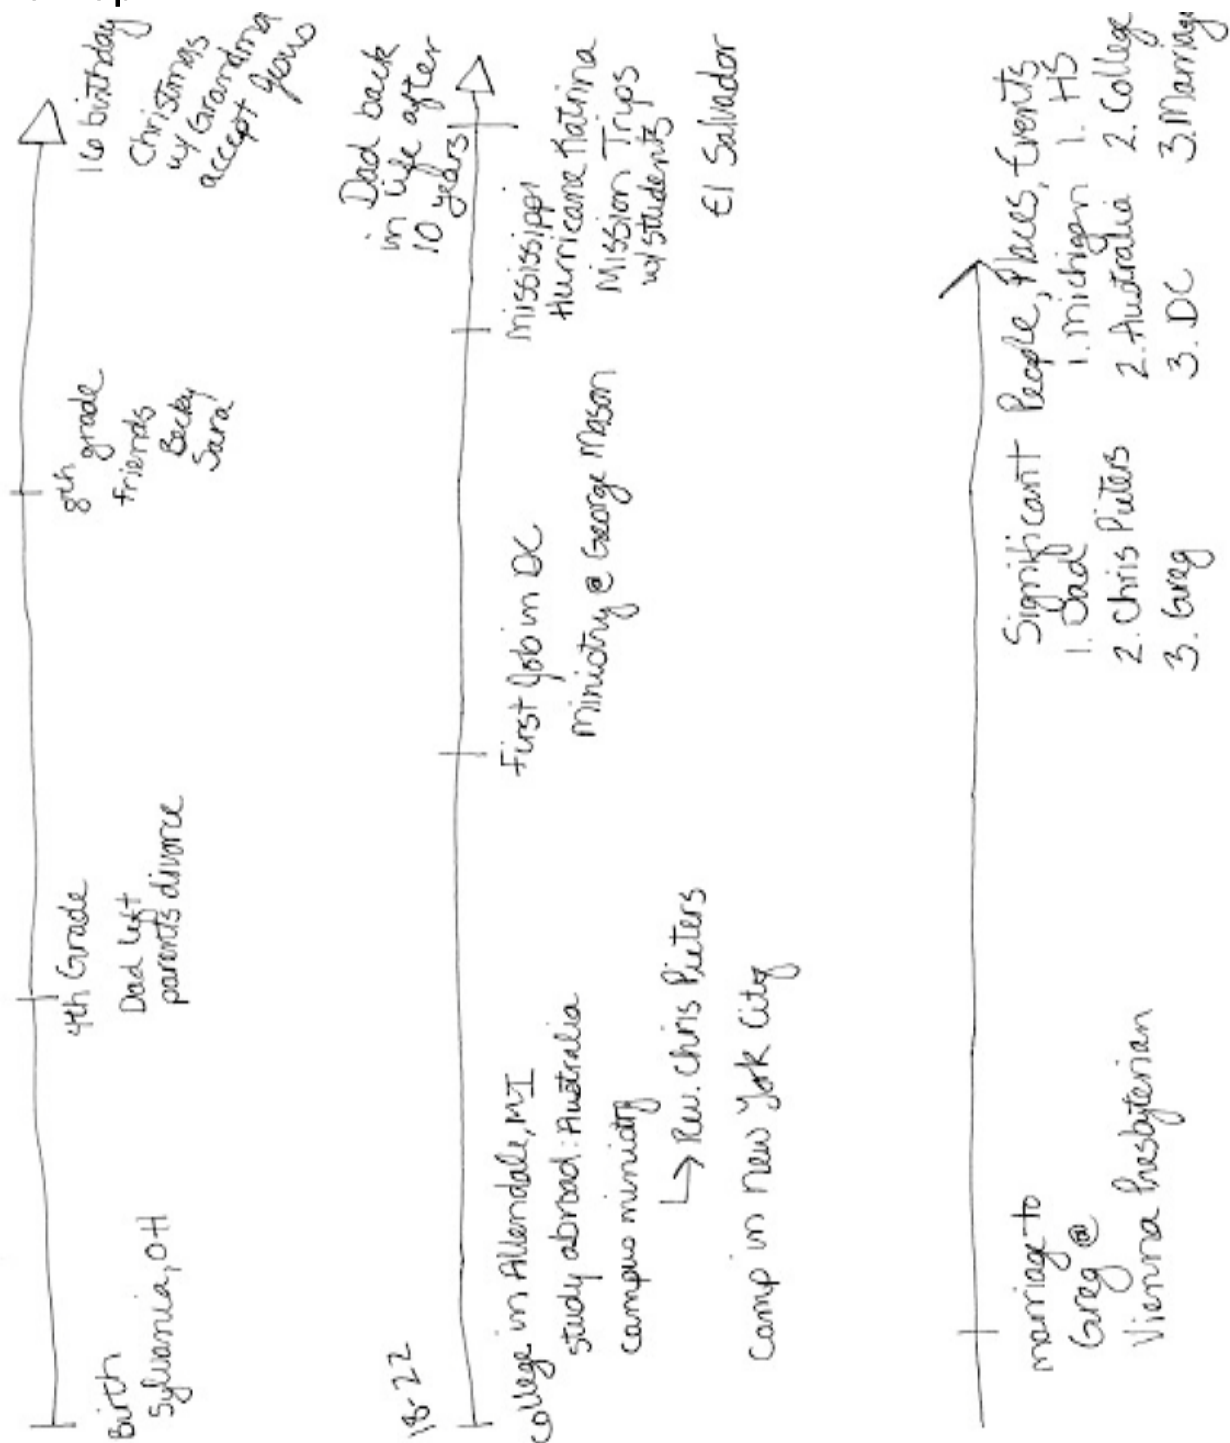 Birth
Sylvania, OH
4th Grade
Dad left
parents divorce
8th grade
friends
Becky
Sara
16 birthday
Christmas
w/ Grandma
accept Jesus
18-22
College in Allendale, MI
study abroad: Australia
campus ministry
↳ Rev. Chris Pieters
Camp in New York City
First Job in DC
Ministry @ George Mason
Mississippi
Hurricane Katrina
Mission Trips
w/ students
El Salvador
Dad back
in life after
10 years
marriage to
Greg @
Vienna Presbyterian
Significant People, Places, Events
1. Dad 1. Michigan 1. HS
2. Chris Pieters 2. Australia 2. College
3. Greg 3. DC 3. Marriage